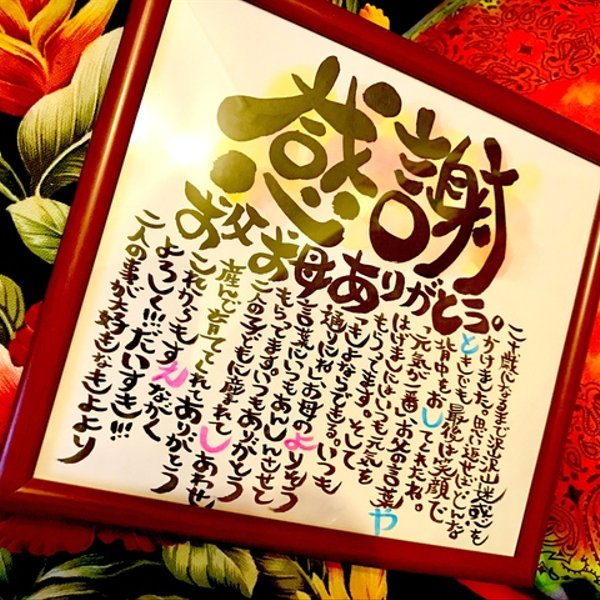 感謝
お父お母ありがとう。
二十歳になるまで沢山沢山迷惑も
かけました。思い返せばどんな
ときでも最後は笑顔で
背中をおしてくれたね。
「元気が一番」お父の言葉や
はげましにはいつも元気を
もらってます。そして
ならできる。いつも
通りにね」お母のよりそう
言葉にいつもあんしんさせて
もらってます。いつもありがとう
二人の子どもに産まれてしあわせ
産んで育ててくれてありがとう
これからもすえながく
よろしく!!!だいすき!!!
二人の事が大好きな より